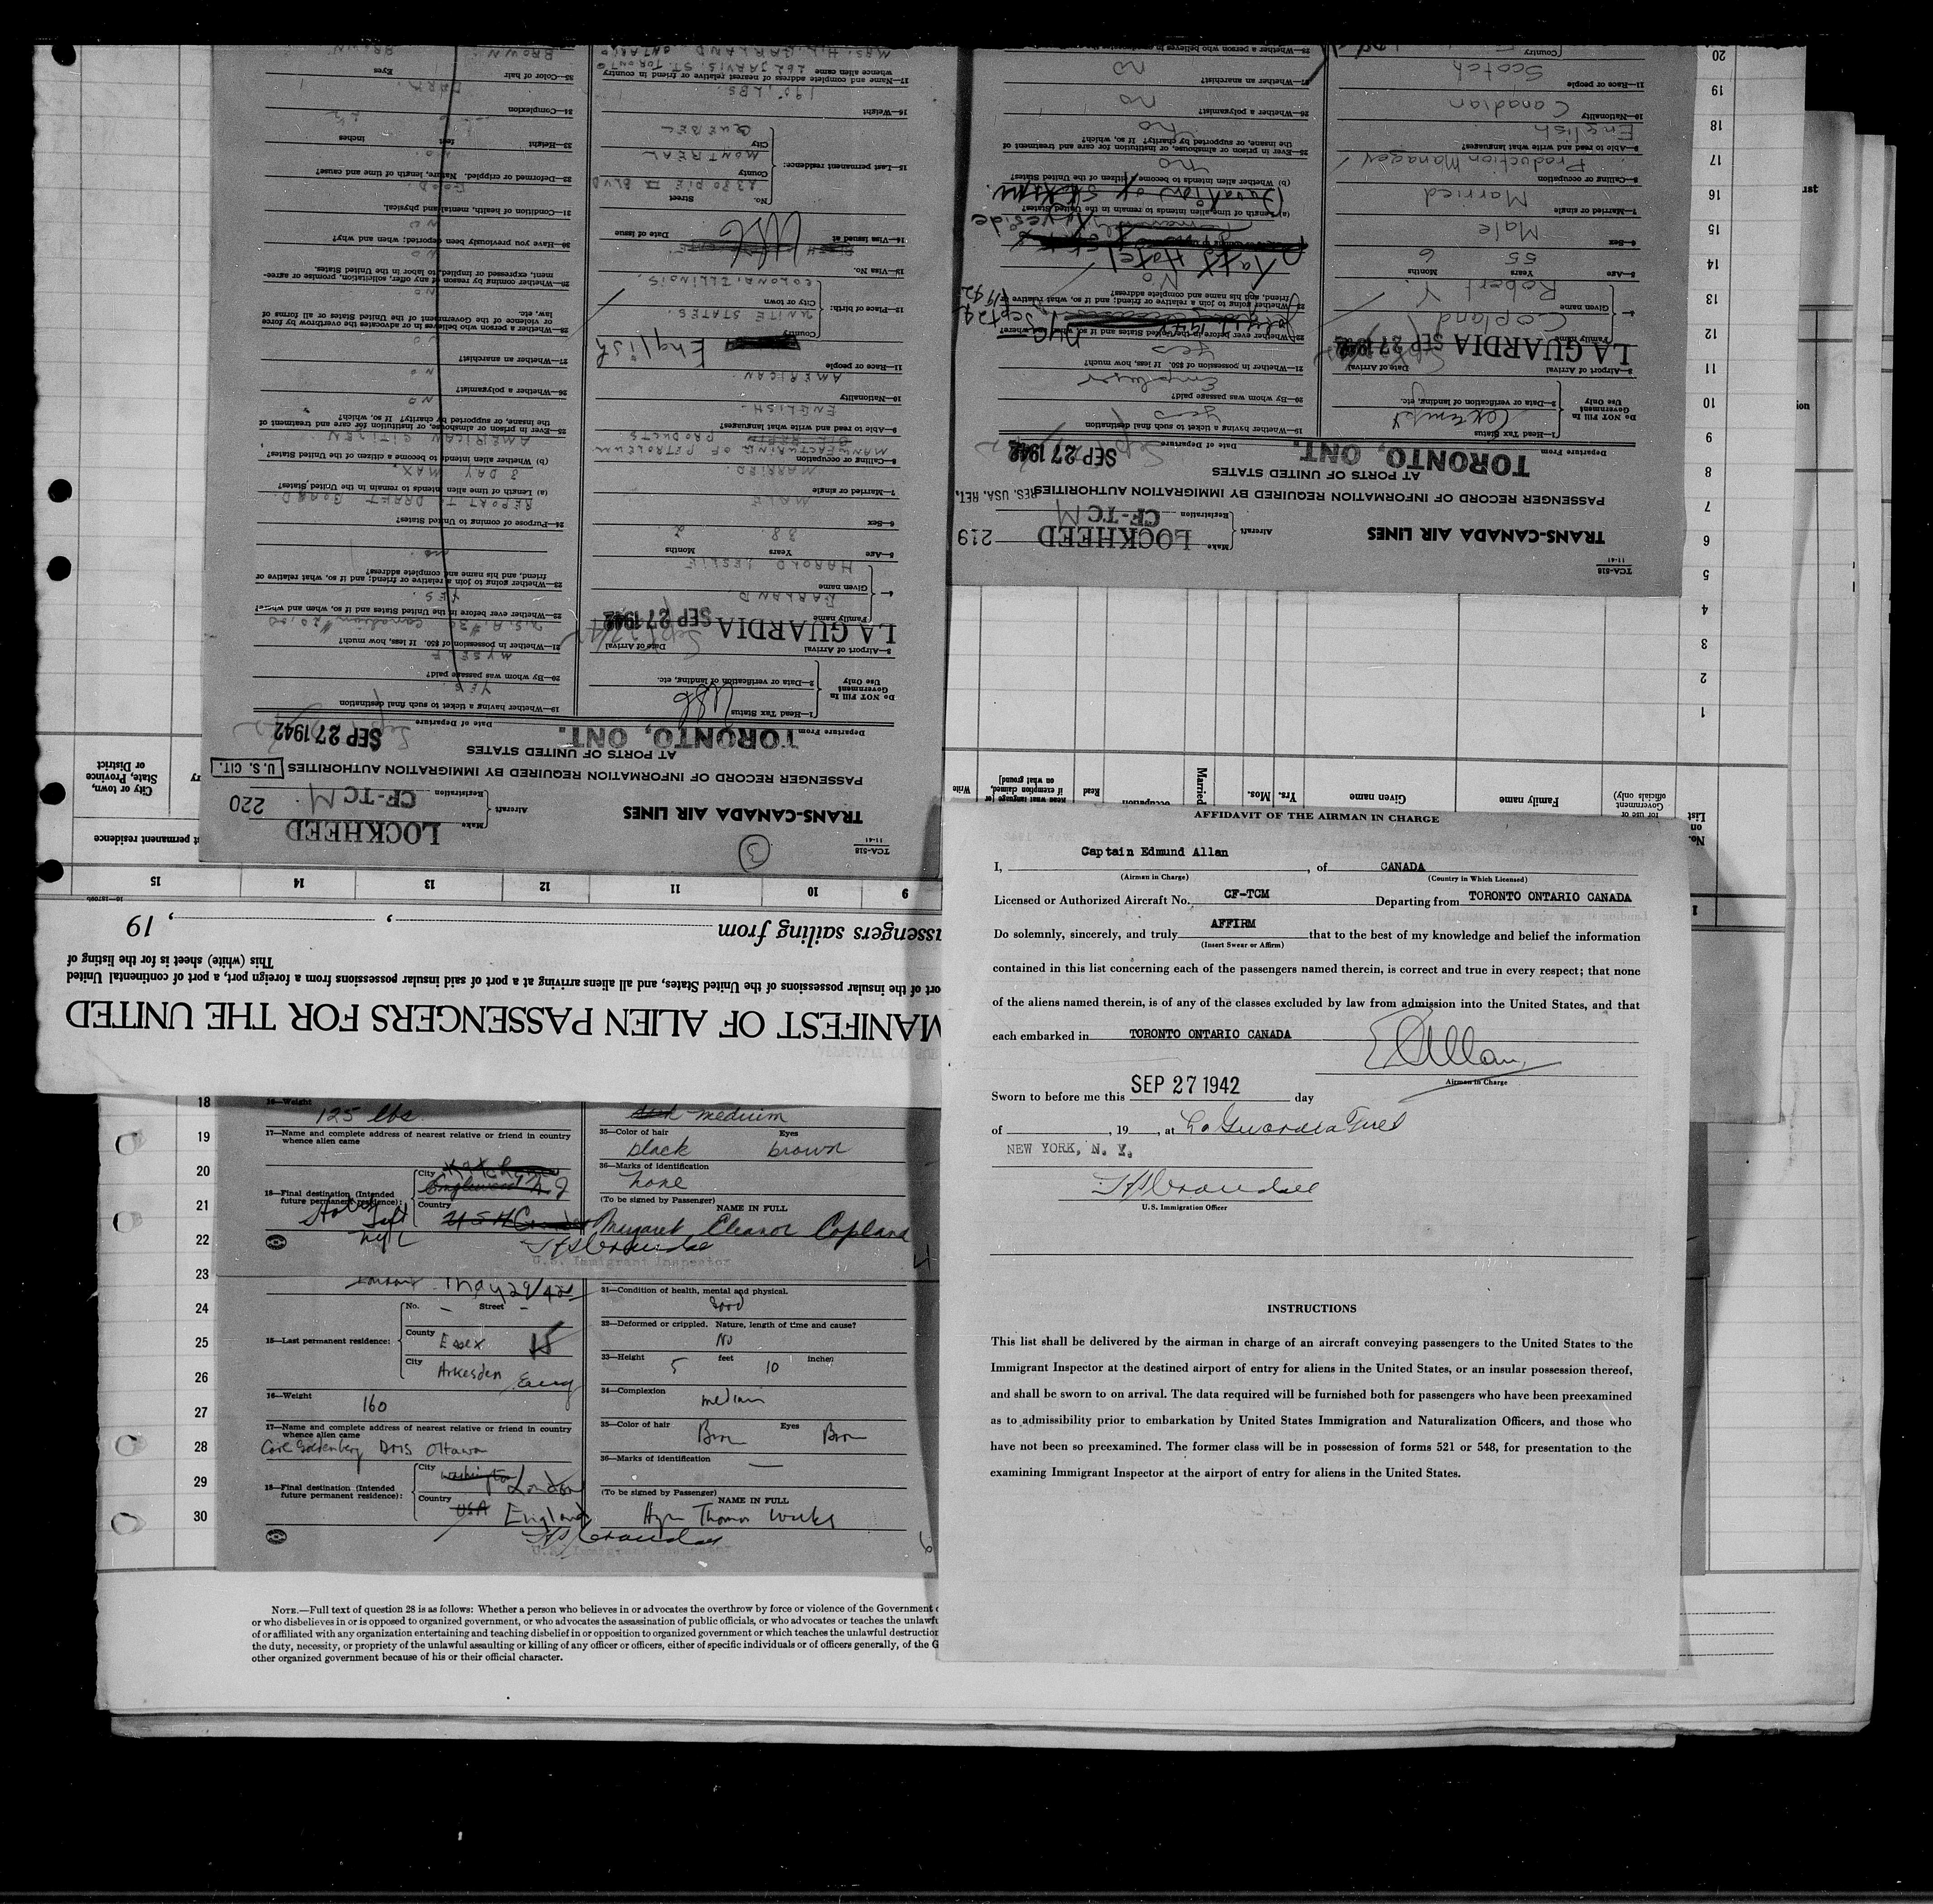 AFFIDAVIT OF THE AIRMAN IN CHARGE
I, Captain Edmund Allan, of CANADA
(Airman in Charge) (Country in Which Licensed)
Licensed or Authorized Aircraft No. CF-TCM Departing from TORONTO ONTARIO CANADA
Do solemnly, sincerely, and truly AFFIRM that to the best of my knowledge and belief the information
(Insert Swear or Affirm)
contained in this list concerning each of the passengers named therein, is correct and true in every respect; that none
of the aliens named therein, is of any of the classes excluded by law from admission into the United States, and that
each embarked in TORONTO ONTARIO CANADA
E Allan
Airman in Charge
Sworn to before me this SEP 27 1942 day
of , 19 , at La Guardia Field
NEW YORK, N. Y.
U.S. Immigration Officer
INSTRUCTIONS
This list shall be delivered by the airman in charge of an aircraft conveying passengers to the United States to the
Immigrant Inspector at the destined airport of entry for aliens in the United States, or an insular possession thereof,
and shall be sworn to on arrival. The data required will be furnished both for passengers who have been preexamined
as to admissibility prior to embarkation by United States Immigration and Naturalization Officers, and those who
have not been so preexamined. The former class will be in possession of forms 521 or 548, for presentation to the
examining Immigrant Inspector at the airport of entry for aliens in the United States.
18
19
20
21
22
23
24
25
26
27
28
29
30
16—Weight 125 lbs
17—Name and complete address of nearest relative or friend in country
whence alien came
18—Final destination (Intended
future permanent residence):
City
Englewood N.J
Country
Hotel Taft
NYC
medium
35—Color of hair Eyes
black brown
36—Marks of identification
none
(To be signed by Passenger)
NAME IN FULL
Margaret Eleanor Copland
U.S. Immigrant Inspector
May 29/42
No. — Street —
15—Last permanent residence:
County Essex
City Arkesden Eng
16—Weight 160
17—Name and complete address of nearest relative or friend in country
whence alien came
Carl Goldenberg DMS Ottawa
18—Final destination (Intended
future permanent residence):
City Washington London
Country USA England
31—Condition of health, mental and physical.
Good
32—Deformed or crippled. Nature, length of time and cause?
No
33—Height 5 feet 10 inches
34—Complexion
medium
35—Color of hair Eyes
Brn Brn
36—Marks of identification
—
(To be signed by Passenger)
NAME IN FULL
U.S. Immigrant Inspector
NOTE.—Full text of question 28 is as follows: Whether a person who believes in or advocates the overthrow by force or violence of the Government
or who disbelieves in or is opposed to organized government, or who advocates the assassination of public officials, or who advocates or teaches the
of or affiliated with any organization entertaining and teaching disbelief in or opposition to organized government or which teaches the unlawful destruction
the duty, necessity, or propriety of the unlawful assaulting or killing of any officer or officers, either of specific individuals or of officers generally, of the
other organized government because of his or their official character.
MANIFEST OF ALIEN PASSENGERS FOR THE UNITED
ort of the insular possessions of the United States, and all aliens arriving at a port of said insular possessions from a foreign port, a port of continental United
This (white) sheet is for the listing of
ssengers sailing from , , 19
9 10 11 12 13 14 15
t permanent residence
City or town, State, Province or District
No. on List
Family name
Given name
Yrs.
Mos.
Married
Read
Read what language [or if exemption claimed, on what ground]
Write
1
2
3
4
5
6
7
8
9
10
11
12
13
14
15
16
17
18
19
20
TCA-518
11-41
3
TRANS-CANADA AIR LINES
Aircraft
Make LOCKHEED
Registration CF-TCM
220
PASSENGER RECORD OF INFORMATION REQUIRED BY IMMIGRATION AUTHORITIES
AT PORTS OF UNITED STATES
U. S. CIT.
Departure From TORONTO, ONT.
Date of Departure SEP 27 1942
Do NOT Fill In
Government
Use Only
1—Head Tax Status USC
2—Data or verification of landing, etc.
3—Airport of Arrival LA GUARDIA
Date of Arrival SEP 27 1942
4—Family name GARLAND
Given name HAROLD LESLIE
5—Age 38 Years 2 Months
6—Sex MALE
7—Married or single MARRIED.
8—Calling or occupation MANUFACTURING OF PETROLEUM PRODUCTS
9—Able to read and write what languages? ENGLISH.
10—Nationality AMERICAN.
11—Race or people English
12—Place of birth: Country UNITE STATES.
City or town COLONA, ILLINOIS.
13—Visa No.
14—Visa issued at Date of issue
USC
15—Last permanent residence:
No. Street 2330 PIE IX BLVD
County MONTREAL
City QUEBEC
16—Weight 190. LBS.
17—Name and complete address of nearest relative or friend in country
whence alien came 262 JARVIS. ST. TORONTO
MRS. H.L. GARLAND. ONTARIO
19—Whether having a ticket to such final destination
YES.
20—By whom was passage paid?
MYSELF
21—Whether in possession of $50. If less, how much?
U.S.A. #30 Canadian #20.00
22—Whether ever before in the United States and if so, when and where?
YES.
23—Whether going to join a relative or friend; and if so, what relative or
friend, and his name and complete address?
no.
24—Purpose of coming to United States?
REPORT T. DRAFT BOARD.
(a) Length of time alien intends to remain in the United States?
3 DAY MAX.
(b) Whether alien intends to become a citizen of the United States?
AMERICAN CITIZEN
25—Ever in prison or almshouse, or institution for care and treatment of
the insane, or supported by charity? If so, which?
NO
26—Whether a polygamist?
NO
27—Whether an anarchist?
NO
28—Whether a person who believes in or advocates the overthrow by force
or violence of the Government of the United States or all forms of
law, etc.
NO
29—Whether coming by reason of any offer, solicitation, promise or agree-
ment, expressed or implied, to labor in the United States.
NO
30—Have you previously been deported; when and why?
NO
31—Condition of health, mental and physical.
GOOD.
32—Deformed or crippled. Nature, length of time and cause?
NO.
33—Height feet inches
34—Complexion DARK.
35—Color of hair Eyes
BROWN BROWN
TCA-518
11-41
TRANS-CANADA AIR LINES
Aircraft
Make LOCKHEED
Registration CF-TCM
219
PASSENGER RECORD OF INFORMATION REQUIRED BY IMMIGRATION AUTHORITIES
RES. USA. RET.
AT PORTS OF UNITED STATES
Departure From TORONTO, ONT.
Date of Departure SEP 27 1942
Do NOT Fill In
Government
Use Only
1—Head Tax Status Exempt
2—Data or verification of landing, etc.
3—Airport of Arrival LA GUARDIA
Date of Arrival SEP 27 1942
4—Family name Copland
Given name Robert Y.
5—Age 55 Years 6 Months
6—Sex Male
7—Married or single Married
8—Calling or occupation Production Manager
9—Able to read and write what languages? English
10—Nationality Canadian
11—Race or people Scotch
Country
19—Whether having a ticket to such final destination
Yes
20—By whom was passage paid?
Employer
21—Whether in possession of $50. If less, how much?
Yes
22—Whether ever before in the United States and if so, when and where?
23—Whether going to join a relative or friend; and if so, what relative or
friend, and his name and complete address?
No
Taft Hotel
(a) Length of time alien intends to remain in the United States?
(b) Whether alien intends to become a citizen of the United States?
No
25—Ever in prison or almshouse, or institution for care and treatment of
the insane, or supported by charity? If so, which?
No
26—Whether a polygamist?
No
27—Whether an anarchist?
No
28—Whether a person who believes in